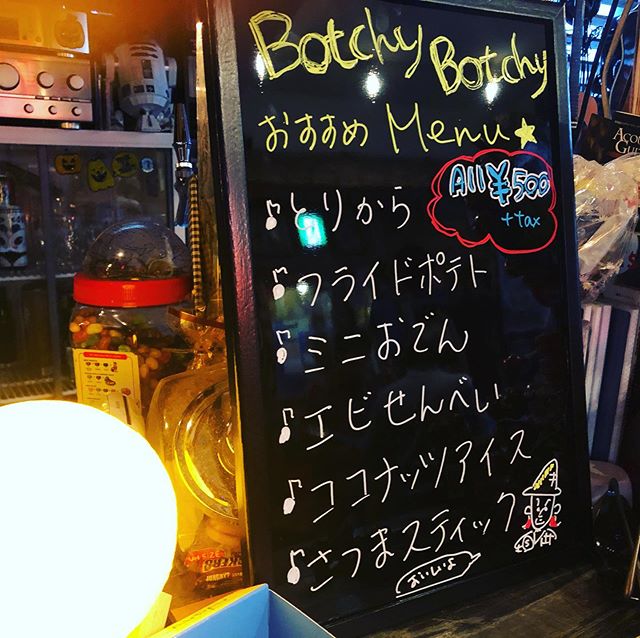 Botchy Botchy
おすすめ Menu★
All ¥500
+tax
♪とりから
♪フライドポテト
♪ミニおでん
♪エビせんべい
♪ココナッツアイス
♪さつまスティック
おいしいよ